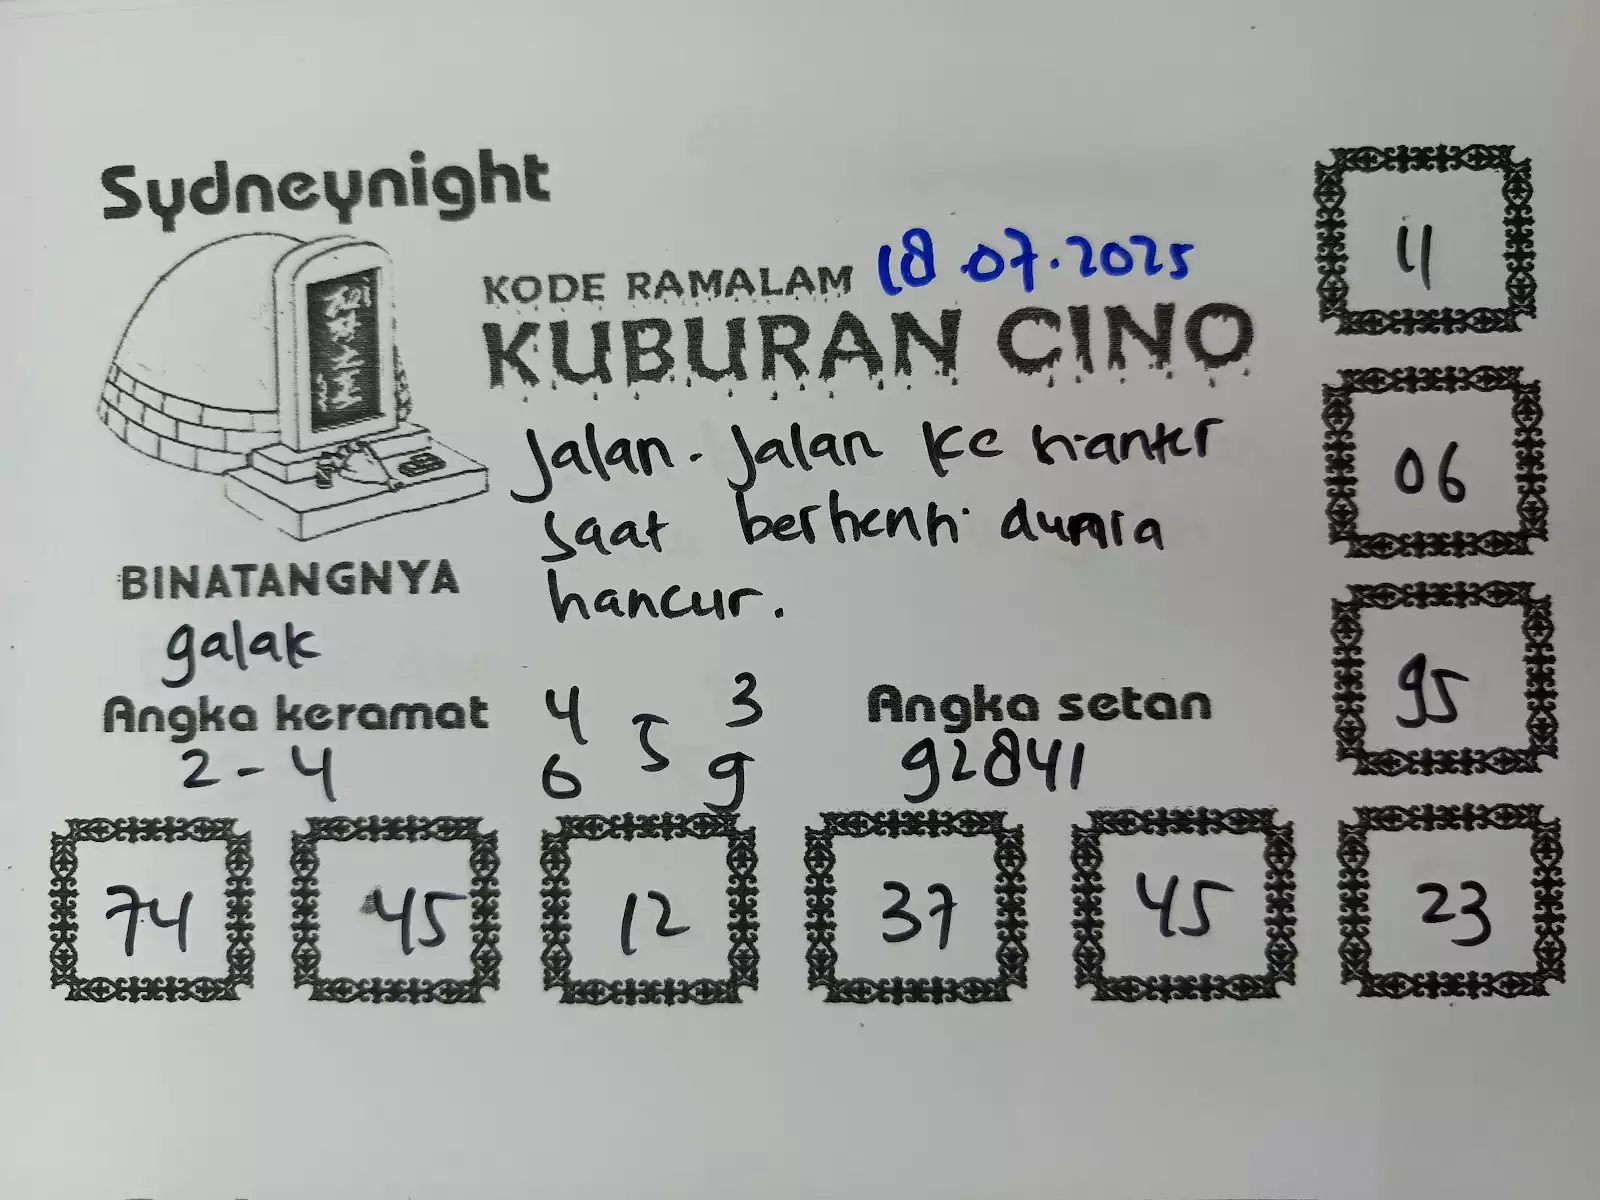 Sydneynight
KODE RAMALAM 18.07.2025
KUBURAN CINO
Jalan-Jalan ke
saat berhenti dunia
hancur.
BINATANGNYA
galak
Angka keramat
2-4
4 3
5
6 9
Angka setan
92841
11
06
95
74 45 12 37 45 23